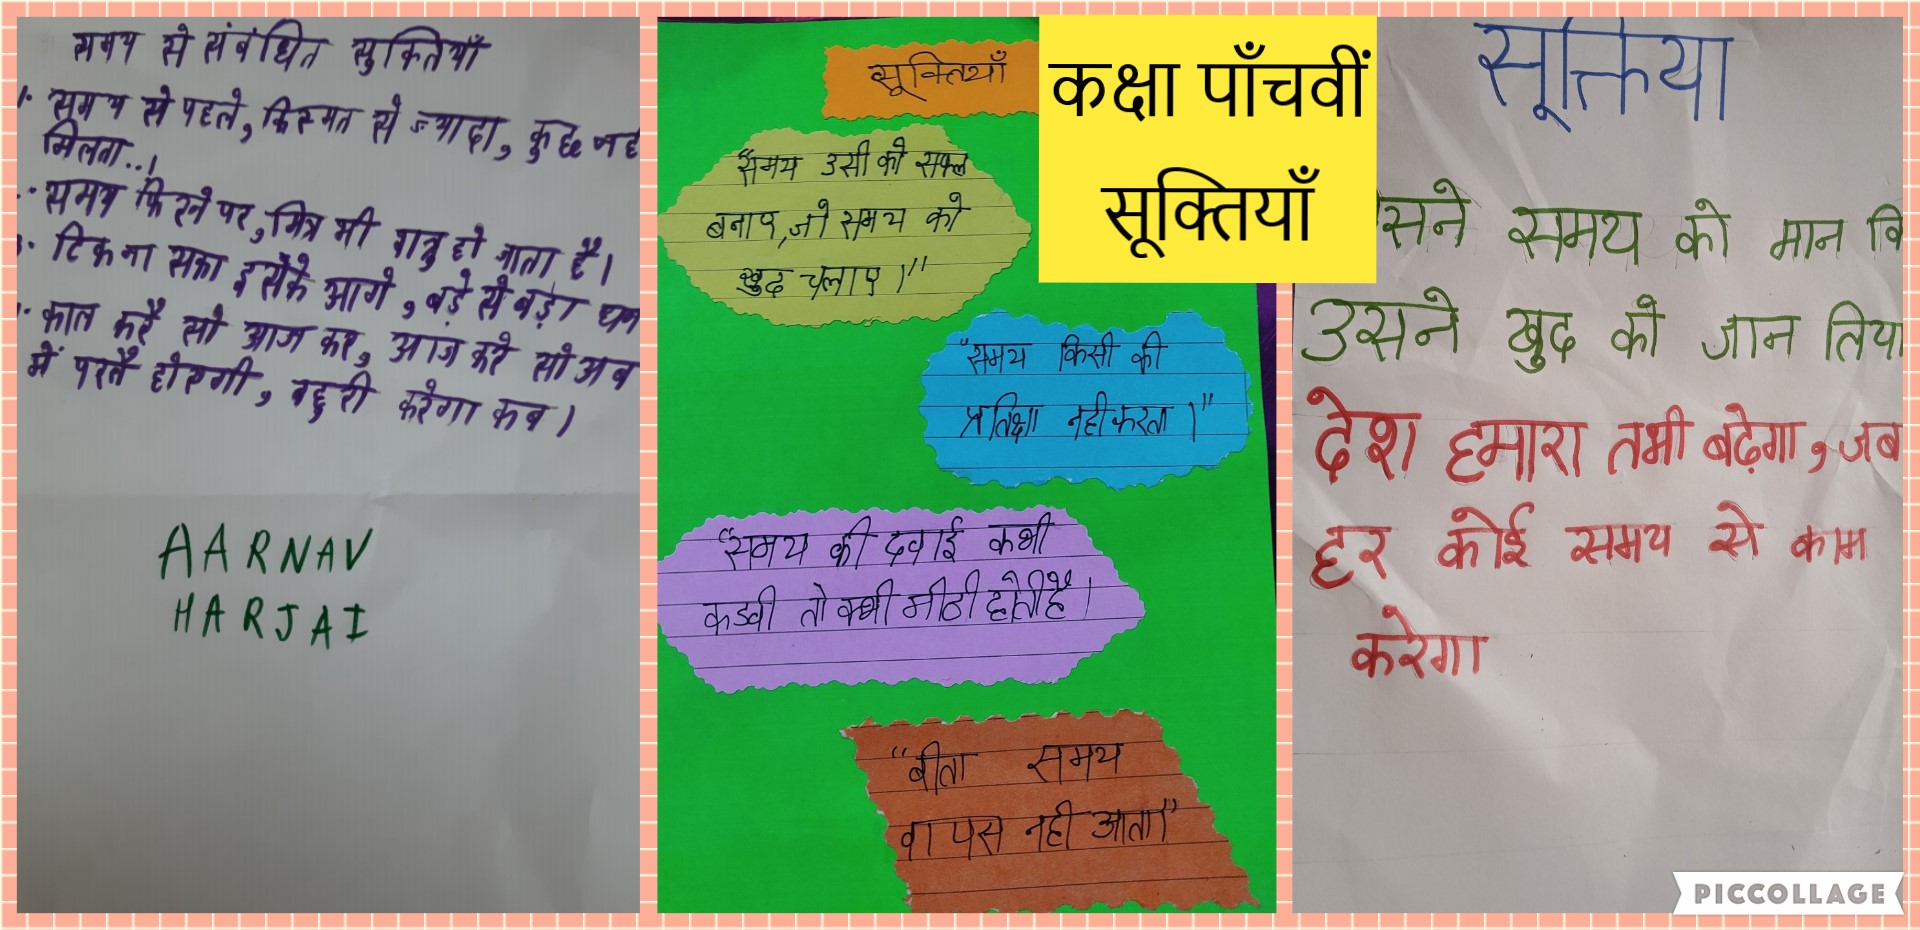 समय से संबंधित सुक्तियाँ
1. समय से पहले, किस्मत से ज्यादा, कुछ
मिलता..।
समय फिरने पर, मित्र भी शत्रु हो जाता है।
टिक ना सका इसके आगे, बड़े से बड़ा
काल करै सो आज कर, आज करे सो अब
में परलै होएगी, बहुरी करेगा कब।
AARNAV
HARJAI
सूक्तियाँ
"समय उसी को सफल
बनाए, जो समय को
खुद चलाए।"
"समय किसी की
प्रतिक्षा नही करता।"
"समय की दवाई कभी
कडवी तो कभी मीठी होती है।
"बीता समय
वापस नही आता।"
कक्षा पाँचवीं
सूक्तियाँ
सूक्तिया
समय को मान
उसने खुद को जान लिया
देश हमारा तभी बढ़ेगा, जब
हर कोई समय से काम
करेगा
PICCOLLAGE